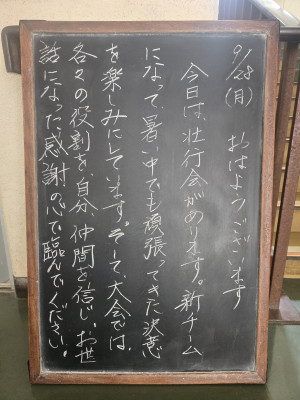 9/28(月) おはようございます
今日は、壮行会があります。新チーム
になって、暑い中でも頑張ってきた決意
を楽しみにしています。そして、大会では、
各々の役割を、自分、仲間を信じ、お世
話になった感謝の心で臨んでください。